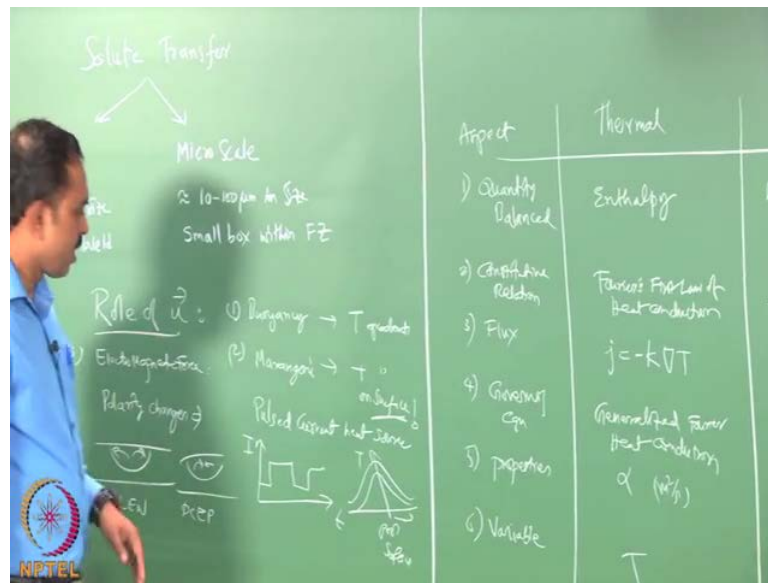 Solute Transfer
Micro Scale
≈ 10-100μm in size
Small box within FZ
Role of u⃗ :
(1) Buoyancy → T gradients
(2) Marangoni → T "
on surface!
Polarity changes ⇒
Pulsed Current heat source
I
t
T
DCEP
Aspect
Thermal
1) Quantity Balanced
Enthalpy
2) Constitutive Relation
Fourier's First Law of Heat conduction
3) Flux
j = -k∇T
4) Governing Eqn
Generalized Fourier Heat Conduction
5) properties
α (m²/s)
6) Variable
T
NPTEL